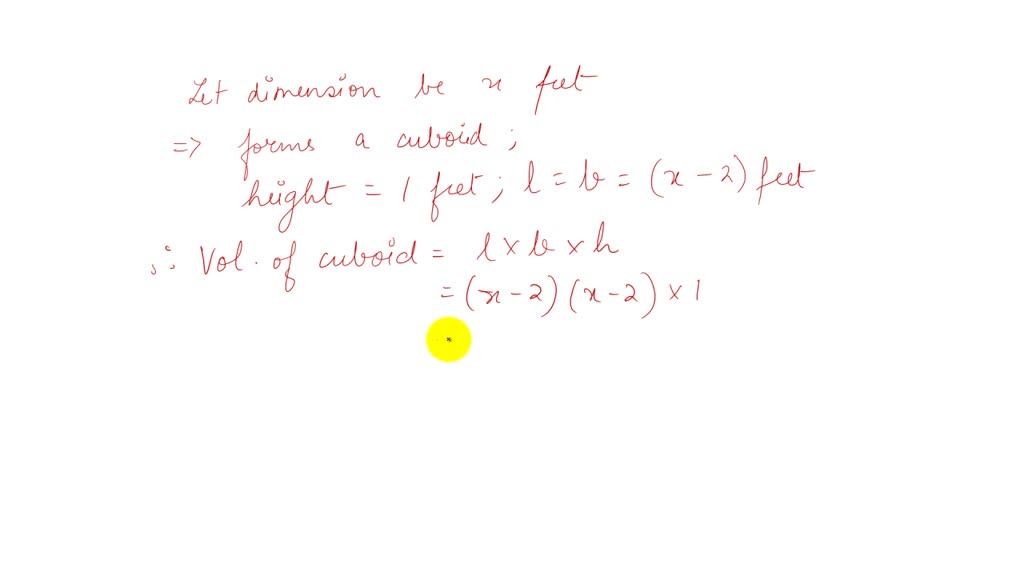 Let dimension be x feet
=> forms a cuboid ;
height = 1 feet ; l = b = (x - 2) feet
∴ Vol. of cuboid = l × b × h
= (x - 2) (x - 2) × 1